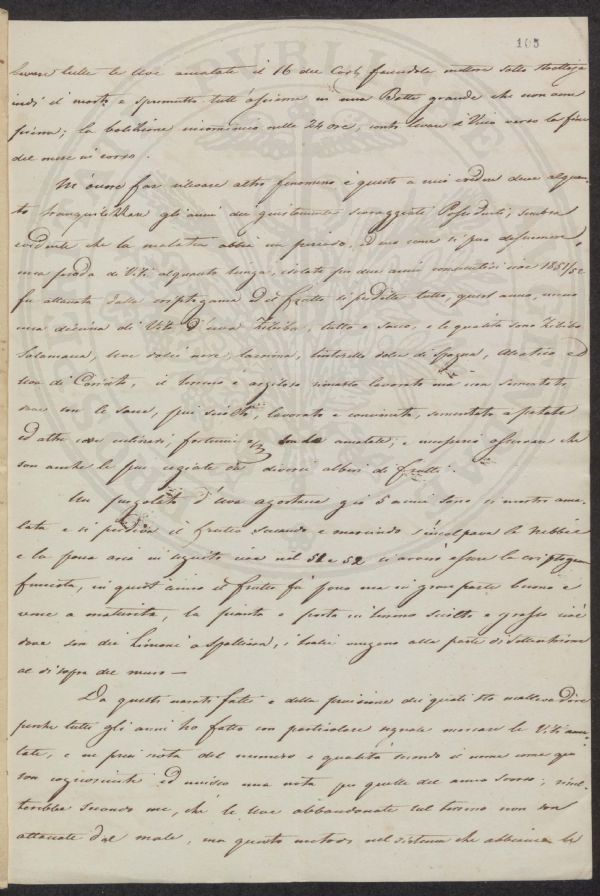 105
levare tutte le Uve ammalate il 16 del Corr. facendole mettere sotto
indi il mosto e spremitura tutt'assieme in una Botte grande che non era
piena; la bollizione incominciò nelle 24 ore, conto levare il Vino verso la fine
del mese in corso.
M'occorre far rilevare altro fenomeno e questo a mio credere deve alquan-
to tranquilizzare gli animi dei giustamente scoraggiati Possidenti, sembra
credibile che la malattia abbia un periodo, ed ecco come si può desumere,
una proda di Viti alquanto lunga, isolata per due anni consecutivi cioè 1851/52
fu attaccata dalla crittogama ed il frutto si perdette tutto, quest'anno, meno
una decina di Viti d'uva Zibibo, tutto è sano, e le qualità sono Zibibo
Salamana, Uve dolci nere, lacrima, tintorello dolce di Spagna, Aleatico ed
Uva di Corinto, il terreno è argiloso rimasto lavorato ma non sementato,
ove son le sane, più sciolto, lavorato e concimato, sementato a patate
ed altre cose culinarie fortumi e/m sulle amalate; e numerosi osservare che
son anche le più cogiate da diversi alberi di frutti.
Un pergolato d'uva agostana già 5 anni sono si mostrò ama-
lata e si perdeva il frutto seccando e marciendo s'incolpava la nebbia
e la poca aria in seguito cioè nel 51 e 52 si trovò essere la crittogama
funesta, in quest'anno il frutto fu poco ma in gran parte buono e
venne a maturità, la pianta è posta in terreno sciolto e grasso cioè
dove son dei Limoni a Spalliera, i tralci vengono alla parte di Settentrione
al di sopra del muro —
Da questi narati fatti e della precisione dei quali sto mallevadore
perche tutti gli anni ho fatto con particolare segnale marcare le Viti ama-
late, e ne presi nota del numero e qualità secondo il nome come qui
son cognosciute ed unisco una nota per quelle del anno scorso; risul-
terebbe secondo me, che le Uve abbandonate sul terreno non son
attaccate dal male, ma questo metodo nel sistema che abbiamo di